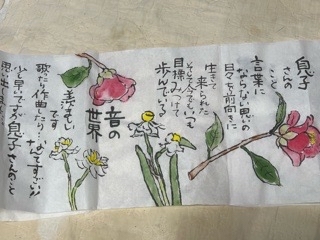 息子
さんの
こと
言葉に
ならない思いの
日々を前向きに
生きて
来られた
そして今でもいつも
目標みつけて
歩んでいる
音の
世界
羨ましい
です
歌ったり作曲したり…なんてすごい!!
少し早いですが息子さんのこと
思い出